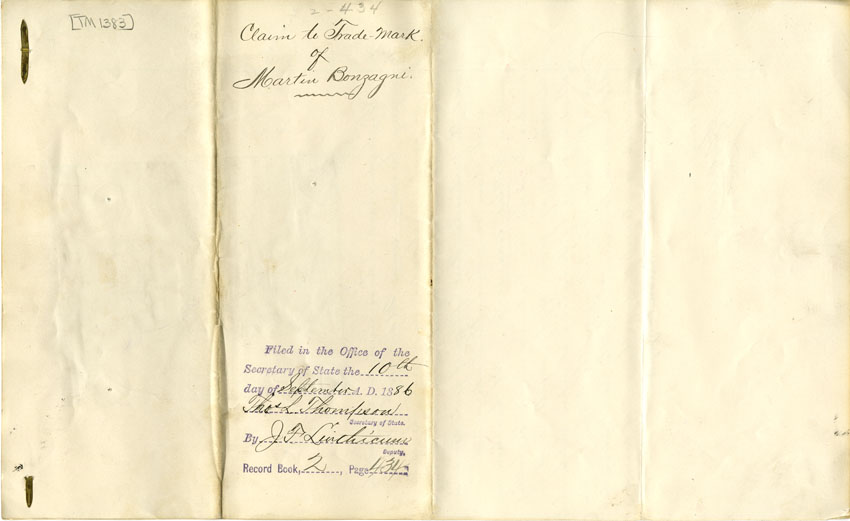 [TM 1383]
2-434
Claim to Trade-Mark.
of
Martin Bonzagni.
Filed in the Office of the
Secretary of State the 10th
day of September A. D. 1886
Thos L Thompson
Secretary of State.
By J. F.
Deputy.
Record Book, 2, Page 434